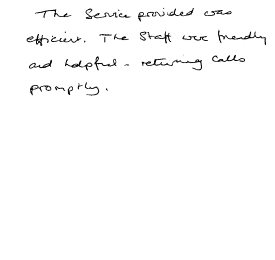 The Service provided was
efficient. The Staff were friendly
and helpful - returning calls
promptly.